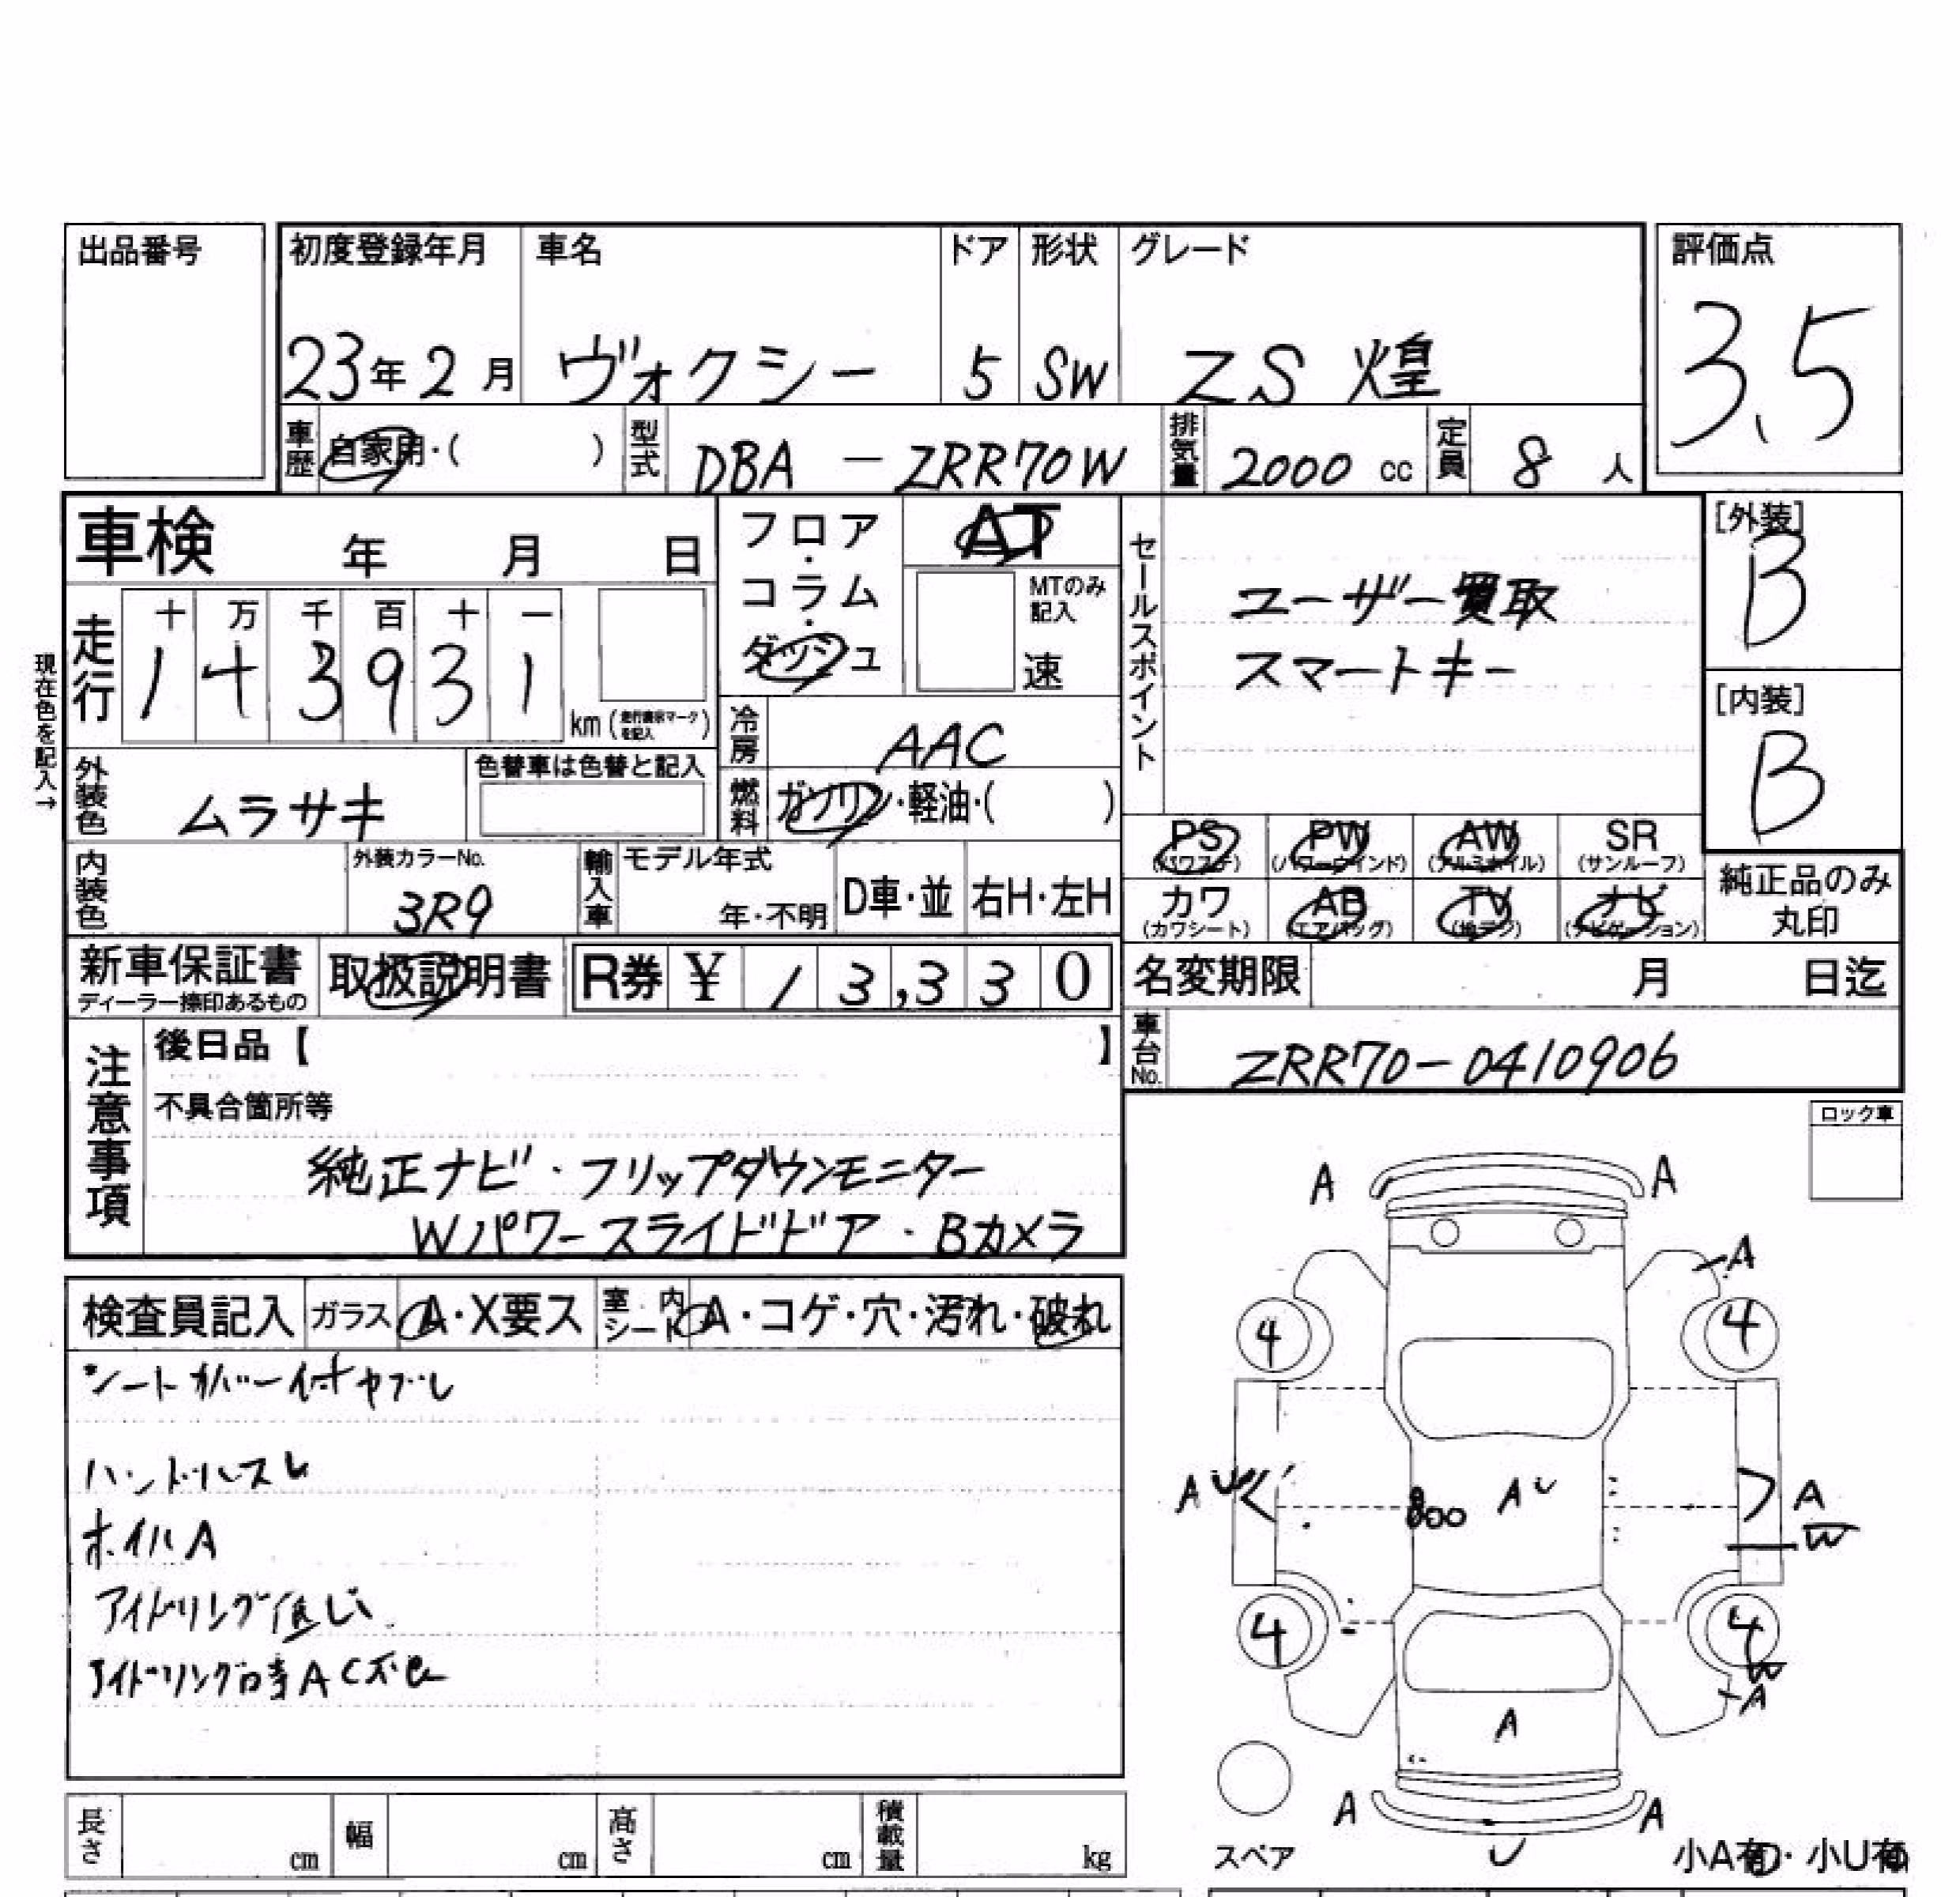 出品番号
初度登録年月 車名 ドア 形状 グレード 評価点
23年2月 ヴォクシー 5 SW ZS 煌 3.5
車歴 自家用・( ) 型式 DBA-ZRR70W 排気量 2000 cc 定員 8 人
車検 年 月 日
フロア・コラム・ダッシュ AT
MTのみ記入
速
セールスポイント
ユーザー買取
スマートキー
[外装]
B
[内装]
B
現在色を記入→
走行 十 万 千 百 十 一
1 4 3 9 3 1
km (走行表示マークを記入)
冷房 AAC
外装色 ムラサキ 色替車は色替と記入
燃料 ガソリン・軽油・( )
PS (パワステ) PW (パワーウインド) AW (アルミホイル) SR (サンルーフ)
カワ (カワシート) AB (エアバッグ) TV (地デジ) ナビ (ナビゲーション)
純正品のみ
丸印
内装色 外装カラーNo. 3R9 輸入車 モデル年式 年・不明 D車・並 右H・左H
新車保証書 ディーラー捺印あるもの 取扱説明書 R券 ¥ 13,330
名変期限 月 日迄
車台No. ZRR70-0410906
注意事項
後日品【 】
不具合箇所等
純正ナビ・フリップダウンモニター
Wパワースライドドア・Bカメラ
ロック車
検査員記入 ガラス A・X要ス 室内シート A・コゲ・穴・汚れ・破れ
シートカバー付ヤブレ
ハンドルスレ
ホイルA
アイドリング低い
アイドリング時AC不良
A A
A
4 4
AU 800 AU A
W
4 4
W
A
A
A A
U
スペア 小A有・小U有
長さ cm 幅 cm 高さ cm 積載量 kg